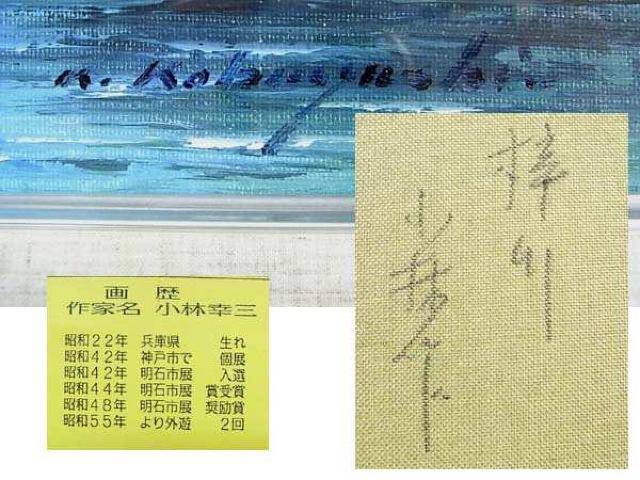 K. Kobayashi
画 歴
作家名 小林幸三
昭和22年 兵庫県 生れ
昭和42年 神戸市で 個展
昭和42年 明石市展 入選
昭和44年 明石市展 賞受賞
昭和48年 明石市展 奨励賞
昭和55年 より外遊 2回